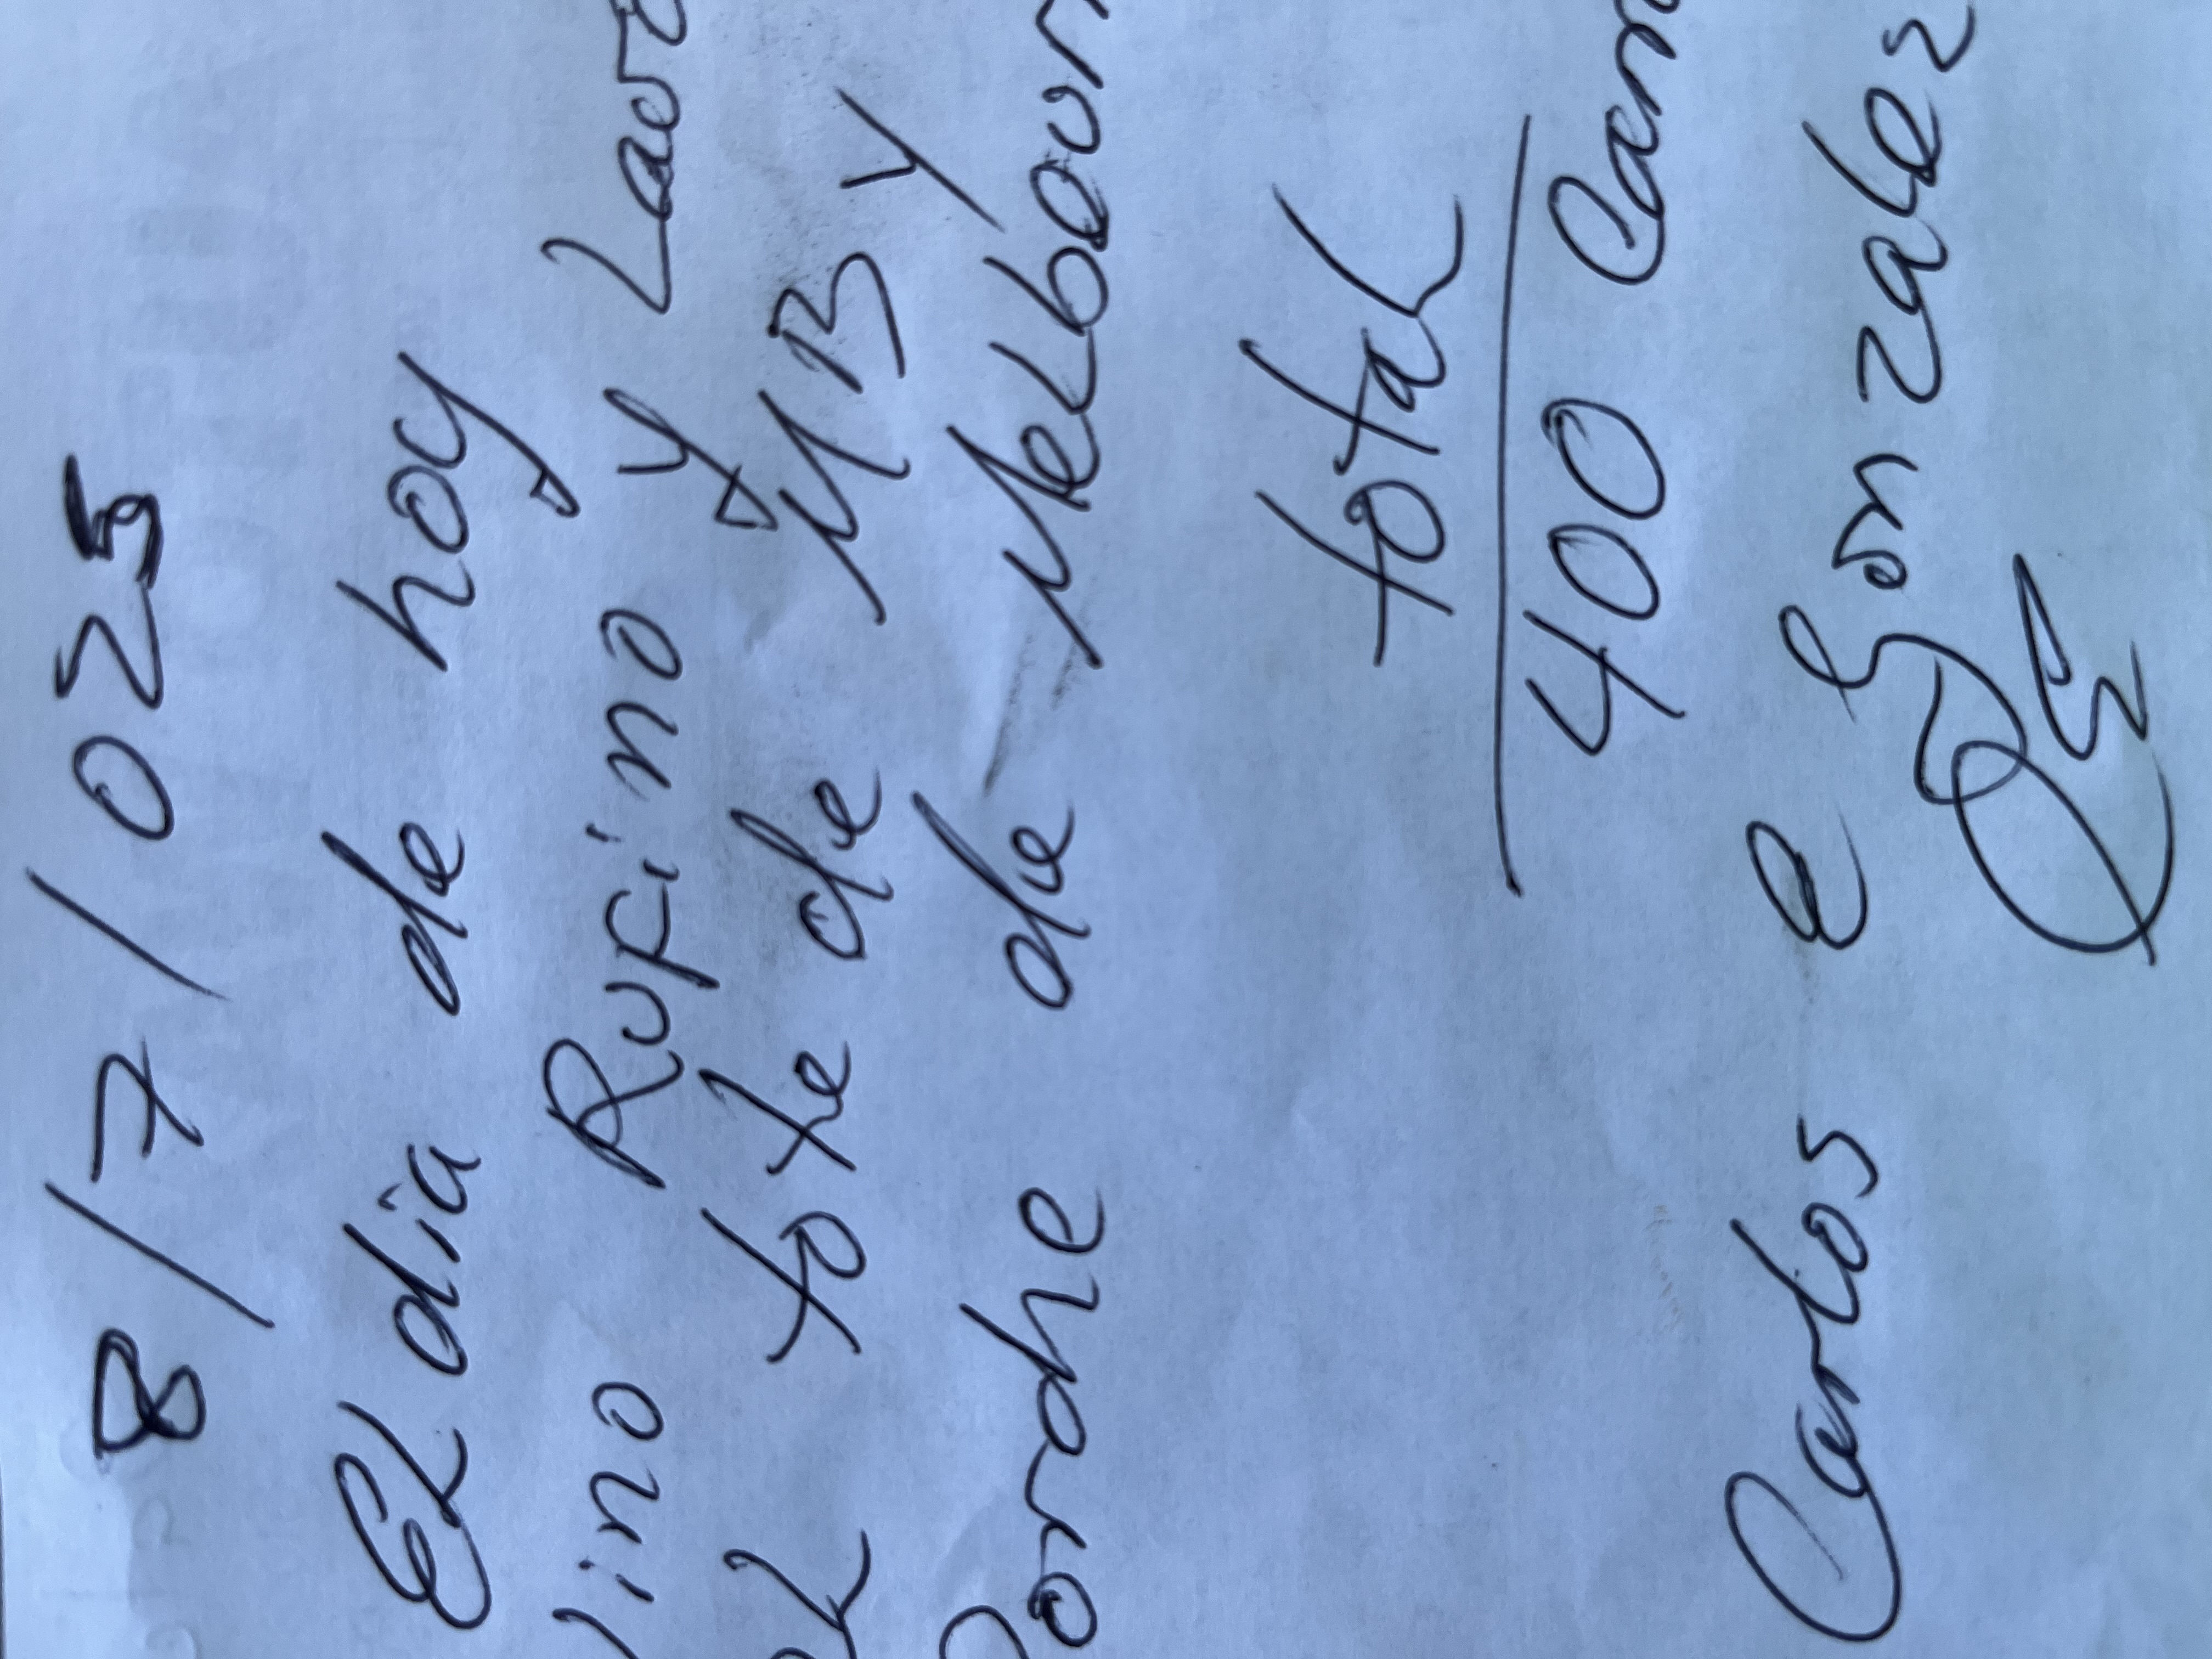 8/7/025
El dia de hoy
lino Rufino y Lavo
el lote de MB y
Porche de Melbourn
total
400 Carr
Carlos E Gonzalez